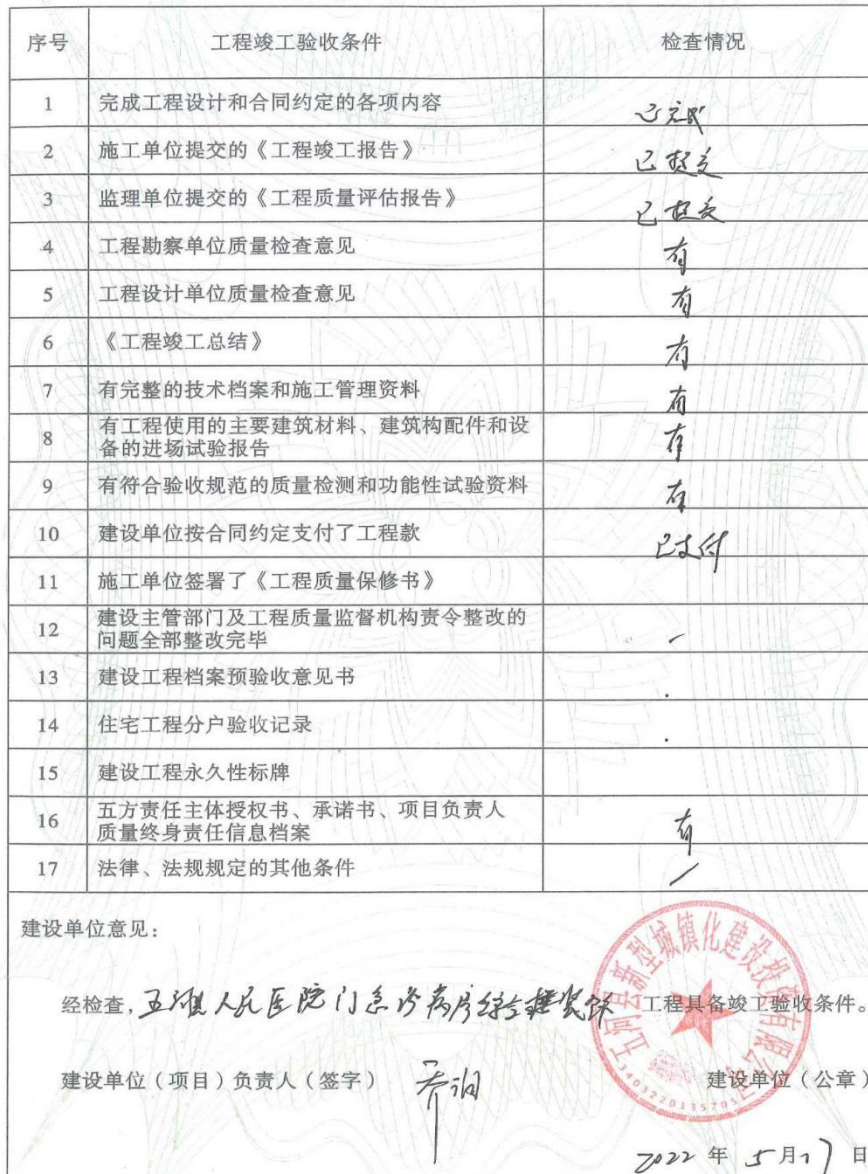 序号 工程竣工验收条件 检查情况
1 完成工程设计和合同约定的各项内容 已完成
2 施工单位提交的《工程竣工报告》 已提交
3 监理单位提交的《工程质量评估报告》 已提交
4 工程勘察单位质量检查意见 有
5 工程设计单位质量检查意见 有
6 《工程竣工总结》 有
7 有完整的技术档案和施工管理资料 有
8 有工程使用的主要建筑材料、建筑构配件和设
备的进场试验报告 有
9 有符合验收规范的质量检测和功能性试验资料 有
10 建设单位按合同约定支付了工程款 已支付
11 施工单位签署了《工程质量保修书》
12 建设主管部门及工程质量监督机构责令整改的
问题全部整改完毕
13 建设工程档案预验收意见书
14 住宅工程分户验收记录
15 建设工程永久性标牌
16 五方责任主体授权书、承诺书、项目负责人
质量终身责任信息档案 有
17 法律、法规规定的其他条件 /
建设单位意见：
经检查，五河县人民医院门急诊病房综合楼装饰 工程具备竣工验收条件。
五河县新型城镇化建设投资有限公司
3403220135705
建设单位（项目）负责人（签字） 乔 建设单位（公章）
2022 年 5 月 17 日